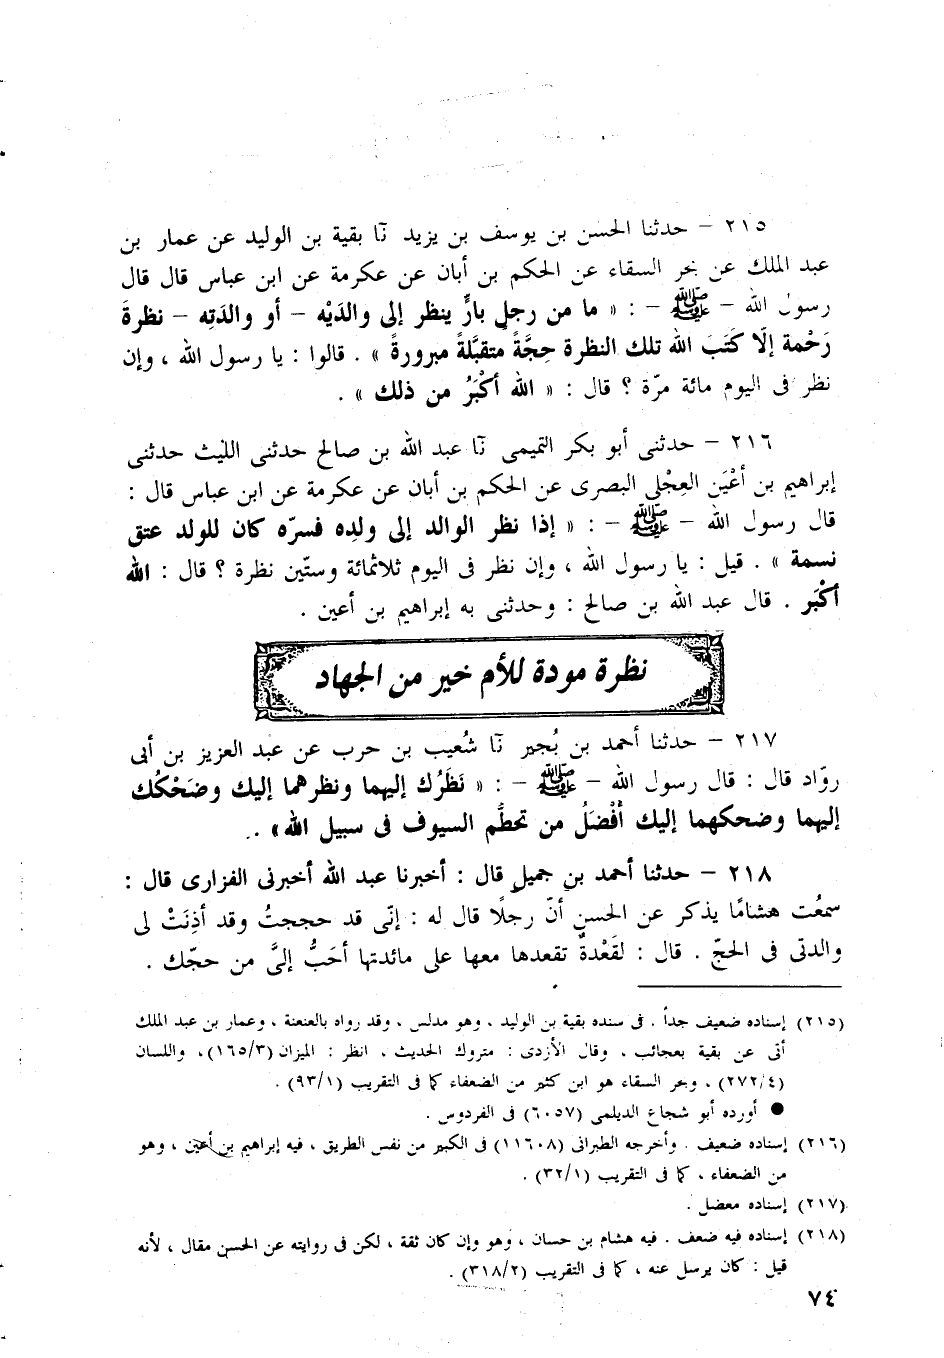 ٢١٥ – حدثنا الحسن بن يوسف بن يزيد نَا بقية بن الوليد عن عمار بن
عبد الملك عن بحر السقاء عن الحكم بن أبان عن عكرمة عن ابن عباس قال قال
رسول الله – ﷺ – : « ما من رجلٍ بارٍّ ينظر إلى والدَيْه – أو والدَتِه – نظرةَ
رَحْمة إلَّا كَتَبَ الله تلك النظرة حِجَّةً متقبَّلةً مبرورةً » . قالوا : يا رسول الله ، وإن
نظر فى اليوم مائة مرّة ؟ قال : « الله أكْبَرُ من ذلك » .
٢١٦ – حدثنى أبو بكر التميمى نَا عبد الله بن صالح حدثنى الليث حدثنى
إبراهيم بن أعْيَن العِجْلى البصرى عن الحكم بن أبان عن عكرمة عن ابن عباس قال :
قال رسول الله – ﷺ – : « إذا نظر الوالد إلى ولدِه فسرّه كان للولد عتق
نسمة » . قيل : يا رسول الله ، وإن نظر فى اليوم ثلاثمائة وستّين نظرة ؟ قال : الله
أكْبَر . قال عبد الله بن صالح : وحدثنى به إبراهيم بن أعين .
نظرة مودة للأم خير من الجهاد
٢١٧ – حدثنا أحمد بن بُجير نَا شُعيب بن حرب عن عبد العزيز بن أبى
روّاد قال : قال رسول الله – ﷺ – : « نَظَرُك إليهما ونظرهما إليك وضَحْكُك
إليهما وضحكهما إليك أفْضَلُ من تحطُّم السيوف فى سبيل الله» .
٢١٨ – حدثنا أحمد بن جميل قال : أخبرنا عبد الله أخبرنى الفزارى قال :
سمعُت هشامًا يذكر عن الحسن أنّ رجلًا قال له : إنّى قد حججتُ وقد أذِنَتْ لى
والدتى فى الحجّ . قال : لقَعْدةٌ تقعدها معها على مائدتها أحَبُّ إلىَّ من حجّك .
(٢١٥) إسناده ضعيف جداً . فى سنده بقية بن الوليد ، وهو مدلس ، وقد رواه بالعنعنة ، وعمار بن عبد الملك
أتى عن بقية بعجائب ، وقال الأزدى : متروك الحديث ، انظر : الميزان (١٦٥/٣)، واللسان
(٢٧٢/٤) ، وبحر السقاء هو ابن كثير من الضعفاء كما فى التقريب (٩٣/١) .
● أورده أبو شجاع الديلمى (٦٠٥٧) فى الفردوس .
(٢١٦) إسناده ضعيف . وأخرجه الطبرانى (١١٦٠٨) فى الكبير من نفس الطريق ، فيه إبراهيم بن أعين ، وهو
من الضعفاء ، كما فى التقريب (٣٢/١) .
(٢١٧) إسناده معضل .
(٢١٨) إسناده فيه ضعف . فيه هشام بن حسان ، وهو وإن كان ثقة ، لكن فى روايته عن الحسن مقال ، لأنه
قيل : كان يرسل عنه ، كما فى التقريب (٣١٨/٢) .
٧٤